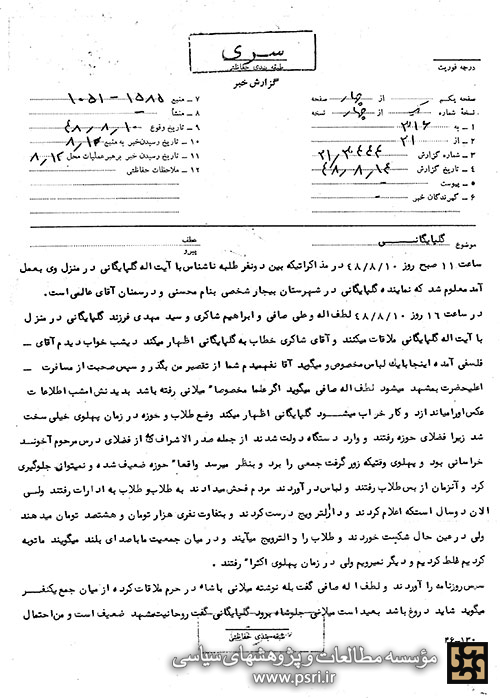 سری
طبقه بندی حفاظتی
درجه فوریت
گزارش خبر
صفحه یکم از چهار صفحه
نسخه شماره یک از چهار نسخه
۱ ـ به ۳۱۶
۲ ـ از ۲۱
۳ ـ شماره گزارش ۲۱/۳۰۴۴۴
۴ ـ تاریخ گزارش ۴۸/۸/۱۴
۵ ـ پیوست
۶ ـ گیرندگان خبر
۷ ـ منبع ۱۵۸۵ – ۱۰۵۱
۸ ـ منشأ
۹ ـ تاریخ وقوع ۴۸/۸/۱۰
۱۰ ـ تاریخ رسیدن خبر به منبع ۸/۱۰
۱۱ ـ تاریخ رسیدن خبر برهبر عملیات محل ۸/۱۲
۱۲ ـ ملاحظات حفاظتی
موضوع گلپایگانی
عطف
پیرو
ساعت ۱۱ صبح روز ۴۸/۸/۱۰ در مذاکراتیکه بین دونفر طلبه ناشناس با آیت اله گلپایگانی در منزل وی بعمل
آمد معلوم شد که نماینده گلپایگانی در شهرستان بیجار شخصی بنام محسنی و در سمنان آقای عالمی است.
در ساعت ۱۶ روز ۴۸/۸/۱۰ لطف اله وعلی صافی و ابراهیم شاکری و سید مهدی فرزند گلپایگانی در منزل
با آیت اله گلپایگانی ملاقات میکنند و آقای شاکری خطاب به گلپایگانی اظهار میکند دیشب خواب دیدم آقای ـ
فلسفی آمده اینجا بایك لباس مخصوص و میگوید آقا نفهمیدم شما از تقصیر من بگذر و سپس صحبت از مسافرت ـ
اعلیحضرت بمشهد میشود لطف اله صافی میگوید اگر علما مخصوصا" میلانی رفته باشد بدیدنش امشب اطلاعات
عکس اورا میاندازد و کار خراب میشود گلپایگانی اظهار میکند وضع طلاب و حوزه در زمان پهلوی خیلی سخت
شد زیرا فضلای حوزه رفتند و وارد دستگاه دولت شدند از جمله صدرالاشراف که از فضلای درس مرحوم آخوند
خراسانی بود و پهلوی وقتیکه زور گرفت جمعی را برد و بنظر میرسد واقعا" حوزه ضعیف شده و نمیتوان جلوگیری
کرد و آنزمان از بس طلاب رفتند و لباس در آوردند مردم فحش میدادند به طلاب و طلاب به ادارات رفتند ولی
الان دو سال استکه اعلام کردند و دارالترویج درست کردند و بتفاوت نفری هزار تومان و هشتصد تومان میدهند
ولی در عین حال شکست خوردند و طلاب را دالترویج میآیند و در میان جمعیت ما باصدای بلند میگویند ماتوبه
کردیم غلط کردیم و دیگر نمیرویم ولی در زمان پهلوی اکثرا" رفتند .
سپس روزنامه را آوردند و لطف اله صافی گفت بله نوشته میلانی باشاه در حرم ملاقات کرده از میان جمع یکنفر
میگوید شاید دروغ باشد بعید است میلانی جلو شاه برود گلپایگانی گفت روحانیت مشهد ضعیف است و من احتمال
طبقه بندی حفاظتی
۴۶-۱۳۰
مؤسسه مطالعات و پژوهشهای سیاسی
www.psri.ir